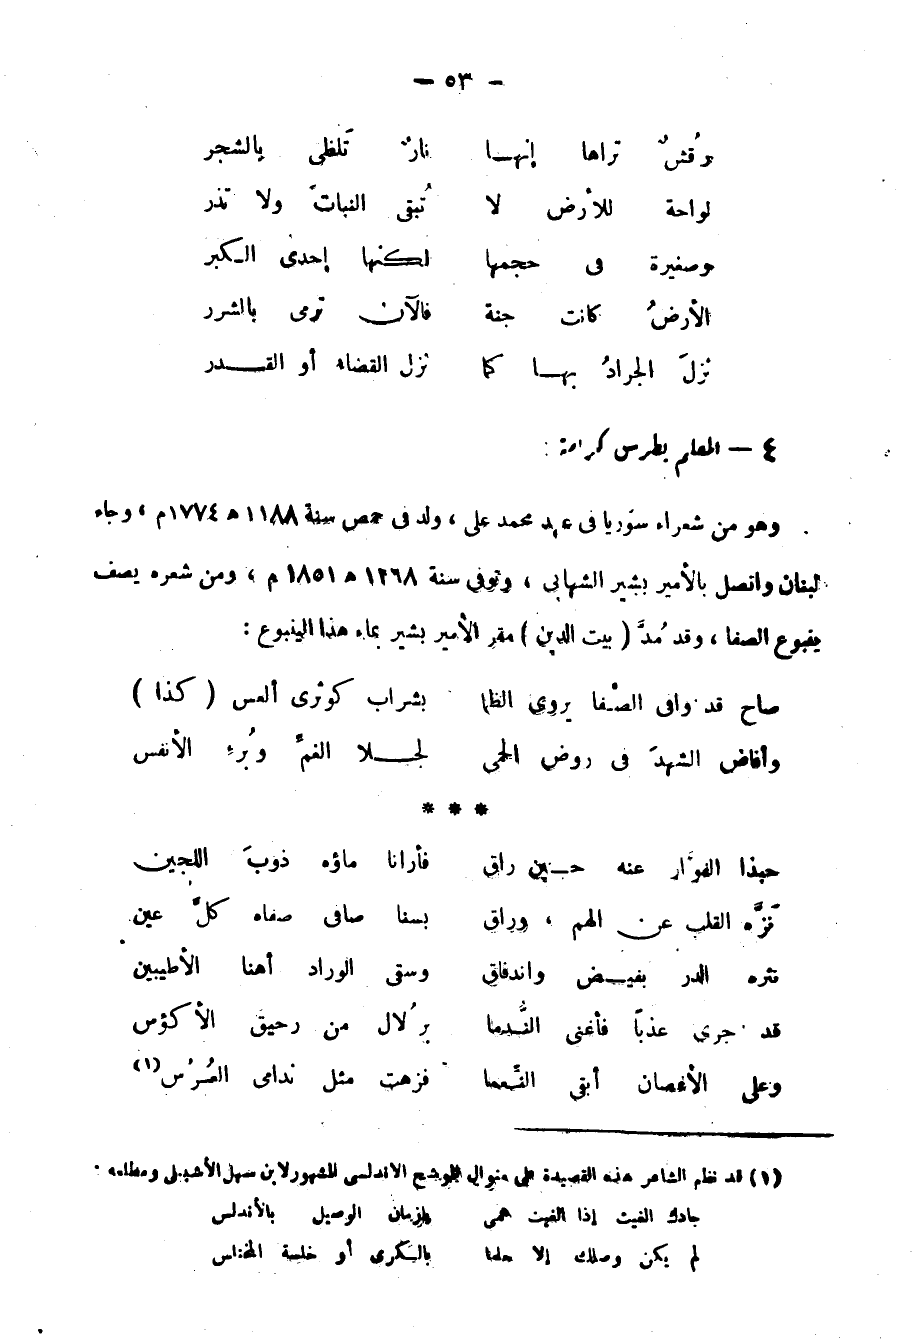 — ٥٣ —
رُقشٌ تراها إنهـا نارٌ تَلظى بالشجر
لواحة للأرض لا تُبقى النباتَ ولا تذر
وصغيرة فى حجمها لكنها إحدى الكبر
الأرضُ كانت جنة فالآن ترمى بالشرر
نزلَ الجرادُ بهـا كما نزل القضاء أو القـدر
٤ — المعلم بطرس كرامة :
وهو من شعراء سوريا فى عهد محمد على ، ولد فى حمص سنة ١١٨٨ ه ١٧٧٤ م ، وجاء
لبنان واتصل بالأمير بشير الشهابى ، وتوفى سنة ١٢٦٨ ه ١٨٥١ م ، ومن شعره يصف
ينبوع الصفا ، وقد مُدَّ ( بيت الدين ) مقر الأمير بشير بماء هذا الينبوع :
صاح قد وافى الصَّفا يروى الظما بشراب كوثرى ألعس ( كذا )
وأفاض الشهدَ فى روض الحمى لجـلا الغمِّ وبُرءِ الأنفس
* * *
حبذا الفوَّار عنه حـين راق فأرانا ماؤه ذوبَ اللجين
نَزَّه القلب عن الهم ، وراق بسفا صافى صفاه كلَّ عين
نثره الدر بفيـض واندفاق وسقى الوراد أهنا الأطيبين
قد جرى عذباً فأغنى النُّدما بزُلال من رحيق الأكؤس
وعلى الأغصان أبقى النَّغما فزهت مثل ندامى العُرُس (١)
(١) قد نظم الشاعر هذه القصيدة على منوال الموشح الاندلسى المشهور لابن سهل الأشبيلى ومطلعه :
جادك الغيث إذا الغيث همى يازمان الوصل بالأندلس
لم يكن وصلك إلا حلما بالكرى أو خلسة المختلس